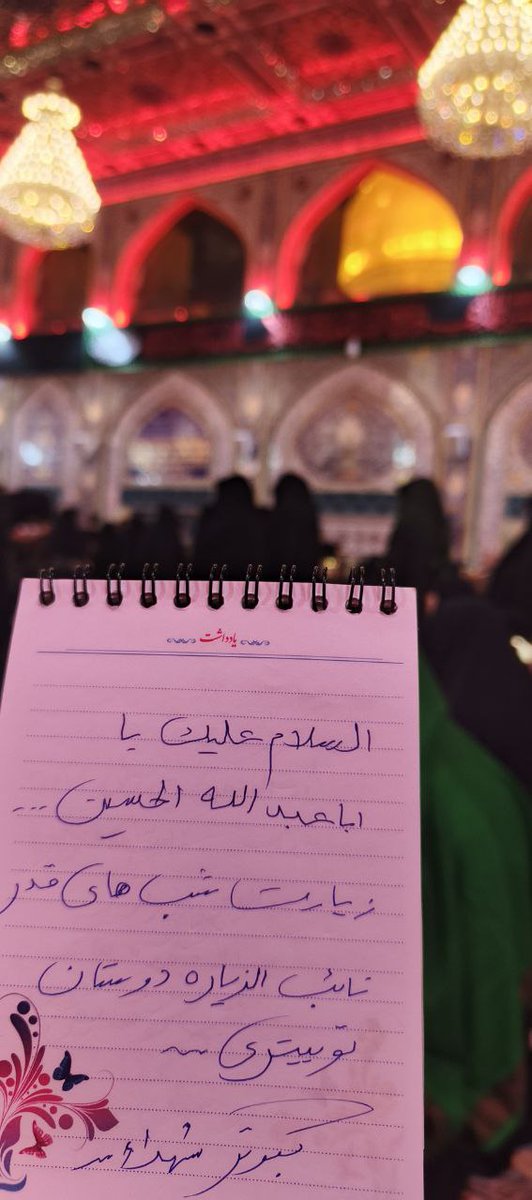 یادداشت
السلام علیک یا
اباعبدالله الحسین ...
زیارت شب های قدر
نائب الزیاره دوستان
توییتری
کبوتر شهداء